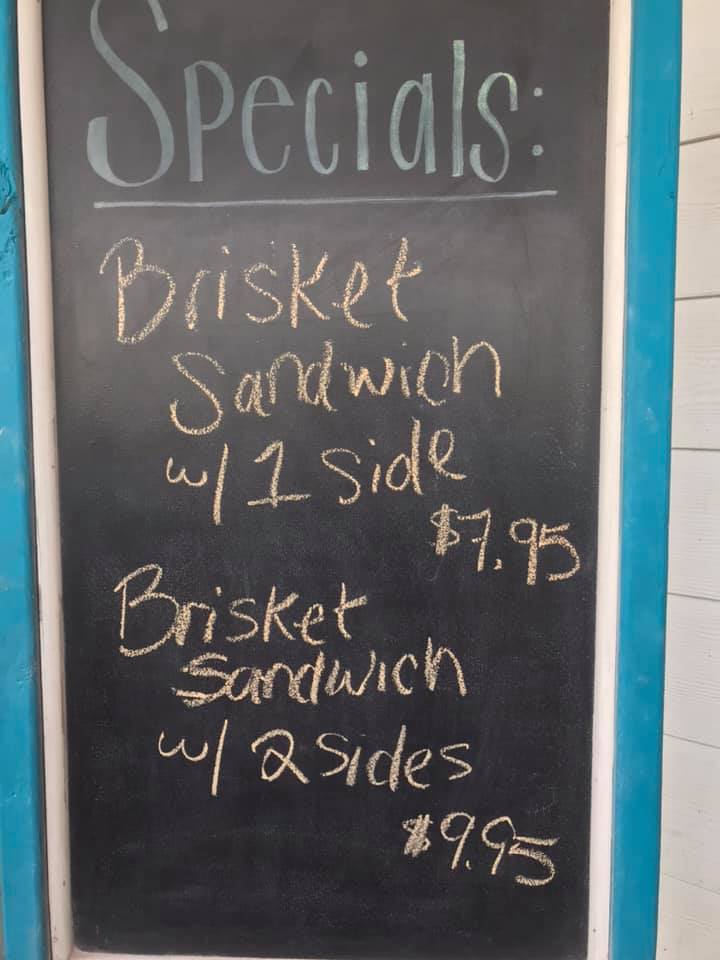 Specials:
Brisket
Sandwich
w/ 1 side
$7.95
Brisket
Sandwich
w/ 2 sides
$9.95